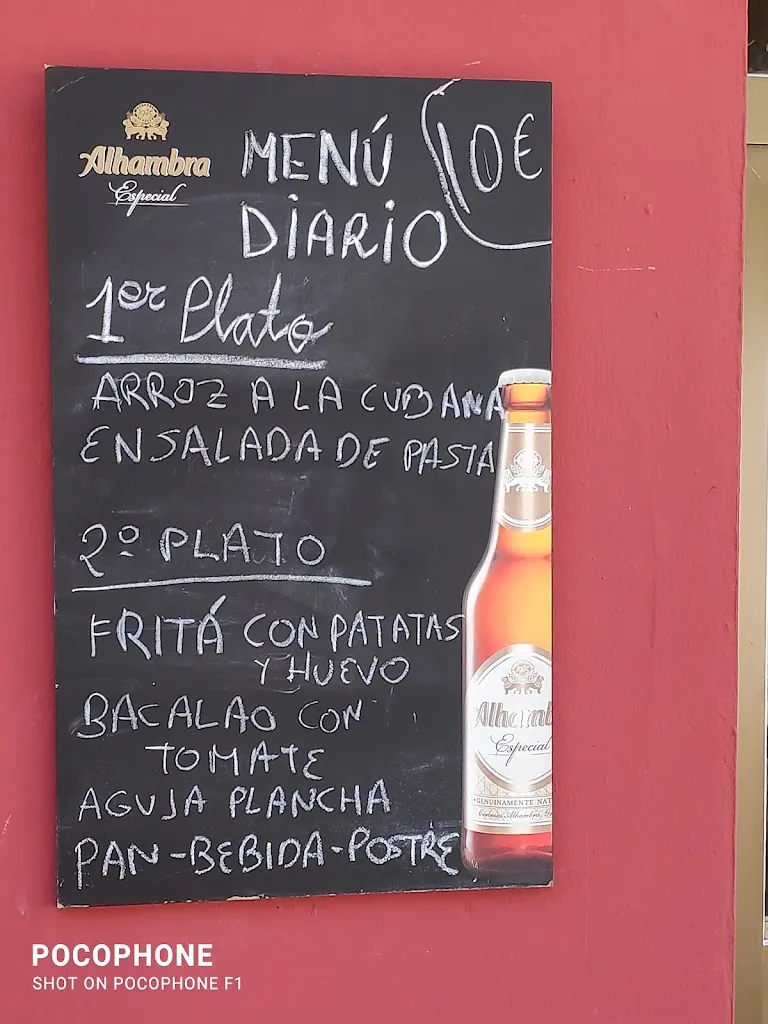 Alhambra
Especial
MENÚ
DIARIO
10€
1er Plato
ARROZ A LA CUBANA
ENSALADA DE PASTA
2º PLATO
FRITÁ CON PATATAS
Y HUEVO
BACALAO CON
TOMATE
AGUJA PLANCHA
PAN-BEBIDA-POSTRE
Alhamb
Especial
GENUINAMENTE NAT
POCOPHONE
SHOT ON POCOPHONE F1